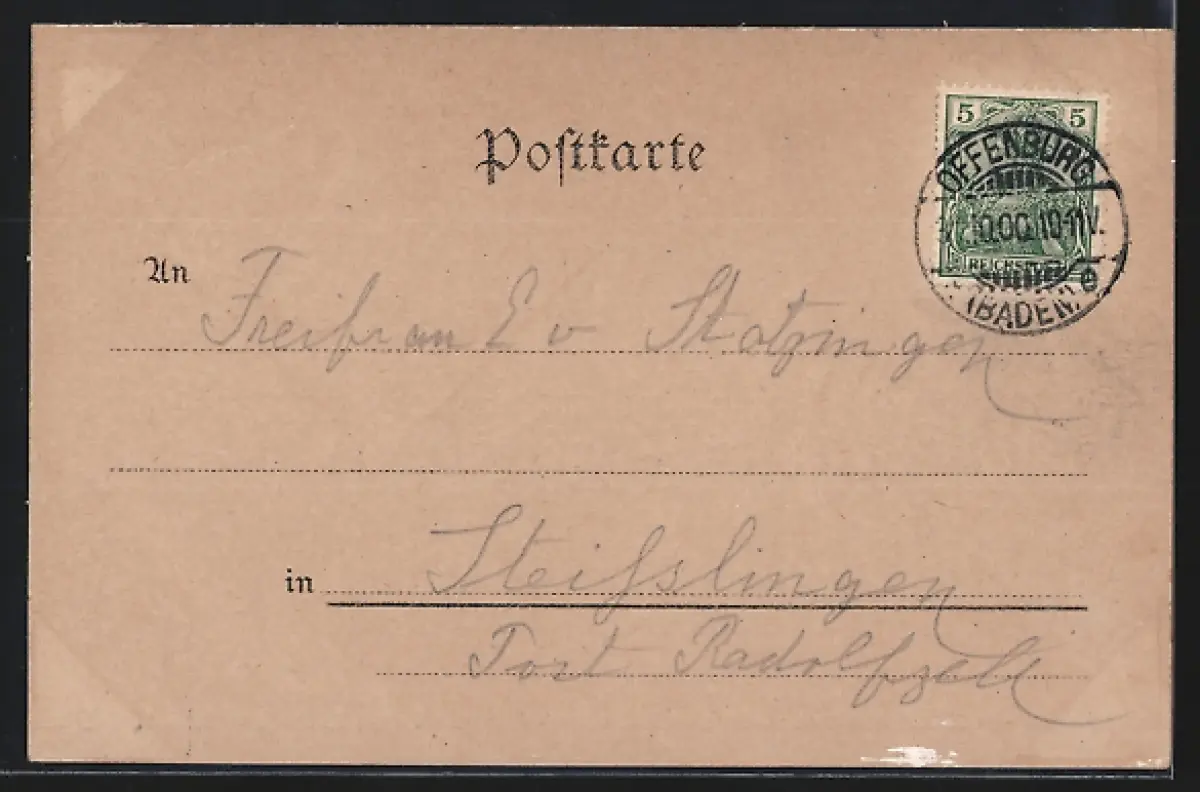 Poſtkarte
5 5
OFFENBURG
10.00.10-11V.
(BADEN) e
REICHSPOST
An Freifrau E v Stotzingen
in Steisslingen
Post Radolfzell